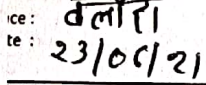 ice : बलौदा
te : 23/06/21